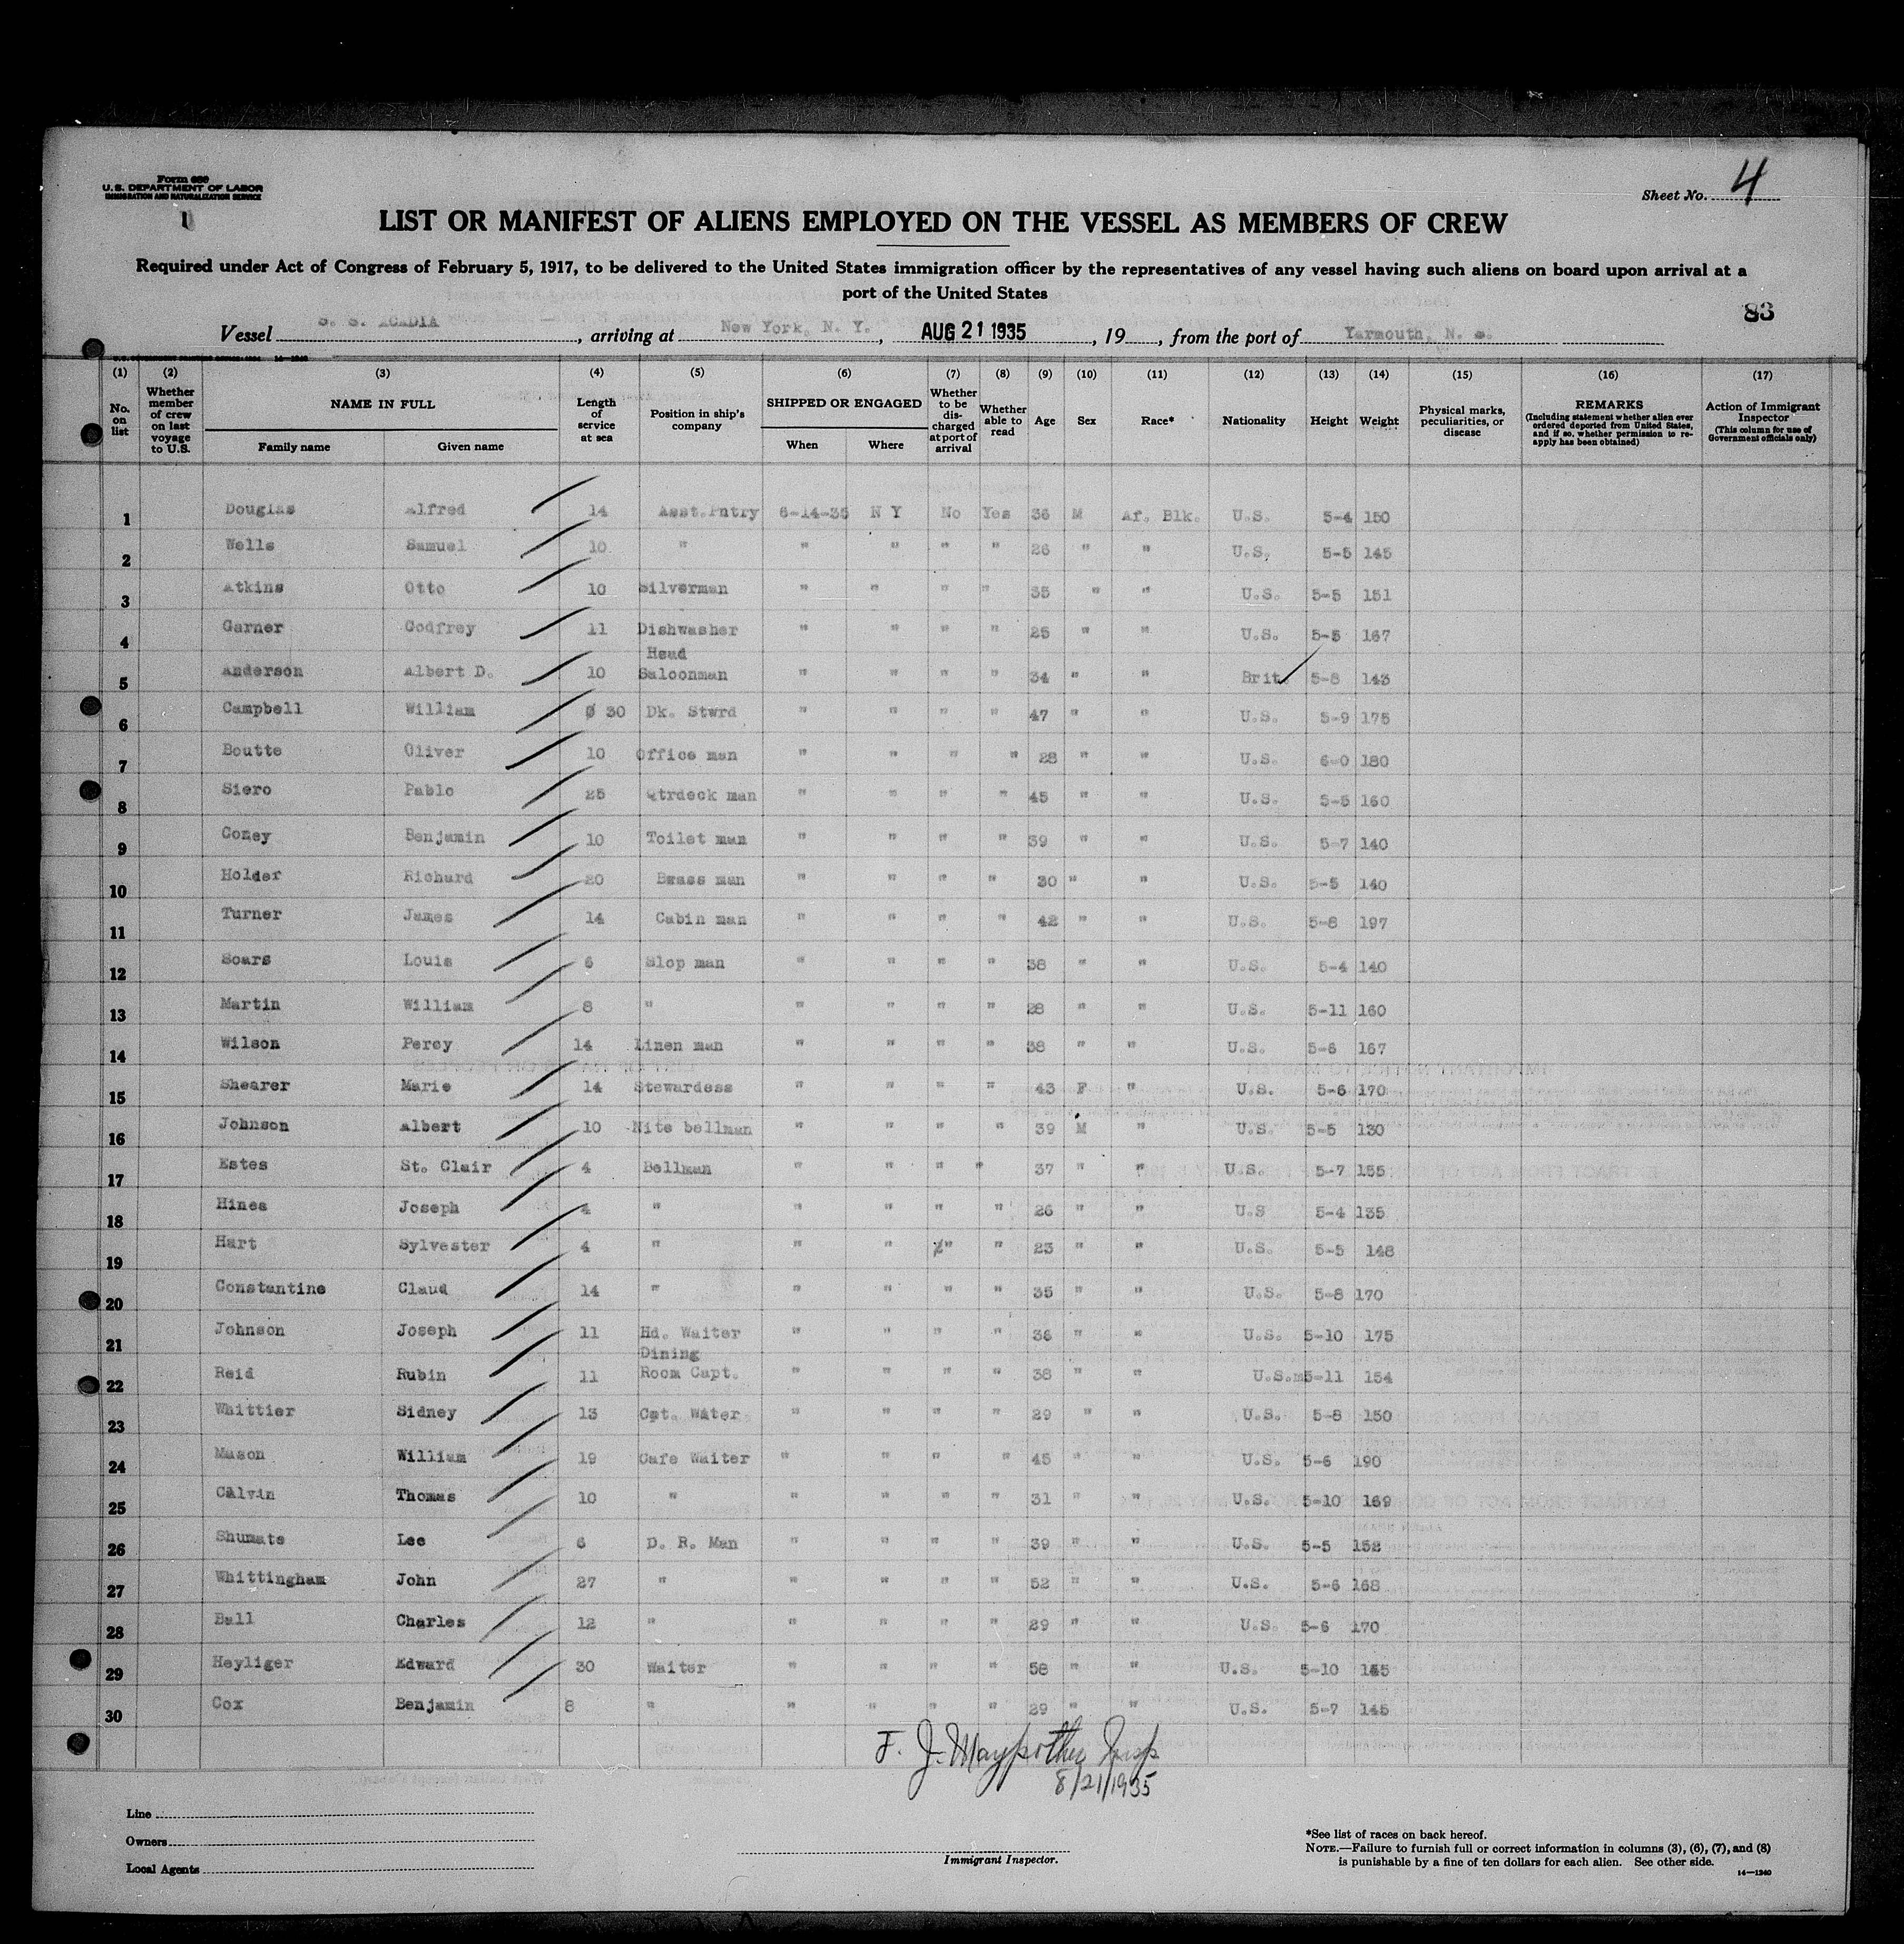 Form 680
U. S. DEPARTMENT OF LABOR
IMMIGRATION AND NATURALIZATION SERVICE
1
Sheet No. 4
LIST OR MANIFEST OF ALIENS EMPLOYED ON THE VESSEL AS MEMBERS OF CREW
Required under Act of Congress of February 5, 1917, to be delivered to the United States immigration officer by the representatives of any vessel having such aliens on board upon arrival at a
port of the United States
83
Vessel S. S. ACADIA, arriving at New York, N. Y., AUG 21 1935, 19, from the port of Yarmouth, N. S.
(1) (2) (3) (4) (5) (6) (7) (8) (9) (10) (11) (12) (13) (14) (15) (16) (17)
No. on list
Whether member of crew on last voyage to U.S.
NAME IN FULL
Family name Given name
Length of service at sea
Position in ship's company
SHIPPED OR ENGAGED
When Where
Whether to be discharged at port of arrival
Whether able to read
Age
Sex
Race*
Nationality
Height
Weight
Physical marks, peculiarities, or disease
REMARKS
(Including statement whether alien ever ordered deported from United States, and if so, whether permission to re-apply has been obtained)
Action of Immigrant Inspector
(This column for use of Government officials only)
1 Douglas Alfred 14 Asst.Pntry 6-14-35 N Y No Yes 36 M Af. Blk. U.S. 5-4 150
2 Wells Samuel 10 " " " " " 26 " " U.S. 5-5 145
3 Atkins Otto 10 Silverman " " " " 35 " " U.S. 5-5 151
4 Garner Godfrey 11 Dishwasher " " " " 25 " " U.S. 5-5 167
Head
5 Anderson Albert D. 10 Saloonman " " " " 34 " " Brit. 5-8 143
6 Campbell William 30 Dk. Stwrd " " " " 47 " " U.S. 5-9 175
7 Boutte Oliver 10 Office man " " " " 28 " " U.S. 6-0 180
8 Siero Pablo 25 Qtrdeck man " " " " 45 " " U.S. 5-5 160
9 Coney Benjamin 10 Toilet man " " " " 39 " " U.S. 5-7 140
10 Holder Richard 20 Brass man " " " " 30 " " U.S. 5-5 140
11 Turner James 14 Cabin man " " " " 42 " " U.S. 5-8 197
12 Soars Louis 6 Slop man " " " " 38 " " U.S. 5-4 140
13 Martin William 8 " " " " " 28 " " U.S. 5-11 160
14 Wilson Percy 14 Linen man " " " " 38 " " U.S. 5-6 167
15 Shearer Marie 14 Stewardess " " " " 43 F " U.S. 5-6 170
16 Johnson Albert 10 Nite bellman " " " " 39 M " U.S. 5-5 130
17 Estes St. Clair 4 Bellman " " " " 37 " " U.S. 5-7 155
18 Hines Joseph 4 " " " " " 26 " " U.S 5-4 135
19 Hart Sylvester 4 " " " " " 23 " " U.S. 5-5 148
20 Constantine Claud 14 " " " " " 35 " " U.S. 5-8 170
21 Johnson Joseph 11 Hd. Waiter " " " " 36 " " U.S. 5-10 175
Dining
22 Reid Rubin 11 Room Capt. " " " " 38 " " U.S. 5-11 154
23 Whittier Sidney 13 Cpt. Water " " " " 29 " " U.S. 5-8 150
24 Mason William 19 Cafe Waiter " " " " 45 " " U.S. 5-6 190
25 Calvin Thomas 10 " " " " " 31 " " U.S. 5-10 169
26 Shumate Lee 6 D. R. Man " " " " 39 " " U.S. 5-5 152
27 Whittingham John 27 " " " " " 52 " " U.S. 5-6 168
28 Ball Charles 12 " " " " " 29 " " U.S. 5-6 170
29 Heyliger Edward 30 Waiter " " " " 58 " " U.S. 5-10
30 Cox Benjamin 8 " " " " " 29 " " U.S. 5-7 145
F. J. Maypother Insp
8/21/1935
Line
Owners
Local Agents
Immigrant Inspector.
*See list of races on back hereof.
NOTE.—Failure to furnish full or correct information in columns (3), (6), (7), and (8)
is punishable by a fine of ten dollars for each alien. See other side.
14—1240